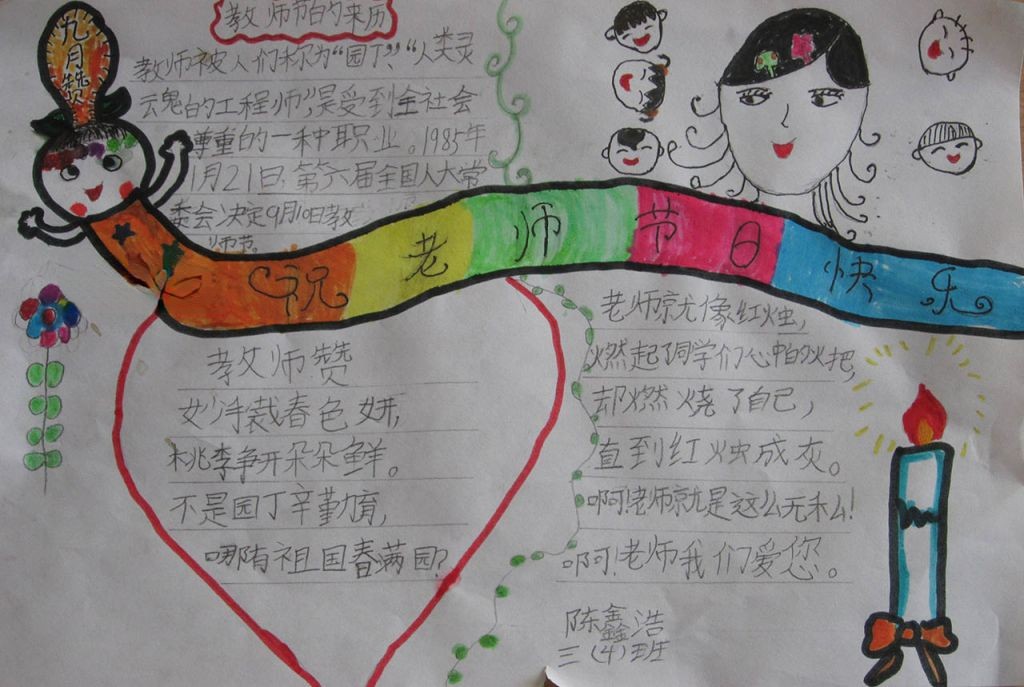 教师节的来历
九月赞
教师被人们称为“园丁”,“人类灵
魂的工程师”,是受到全社会
尊重的一种职业。1985年
1月21日,第六届全国人大常
委会决定9月10日教
师节。
祝老师节日快乐
教师赞
妙手裁春色妍,
桃李争开朵朵鲜。
不是园丁辛勤育,
哪有祖国春满园?
老师就像红烛,
燃起了同学们心中的火把,
却燃烧了自己,
直到红烛成灰。
啊!老师就是这么无私!
啊!老师我们爱您。
陈鑫浩
三(4)班